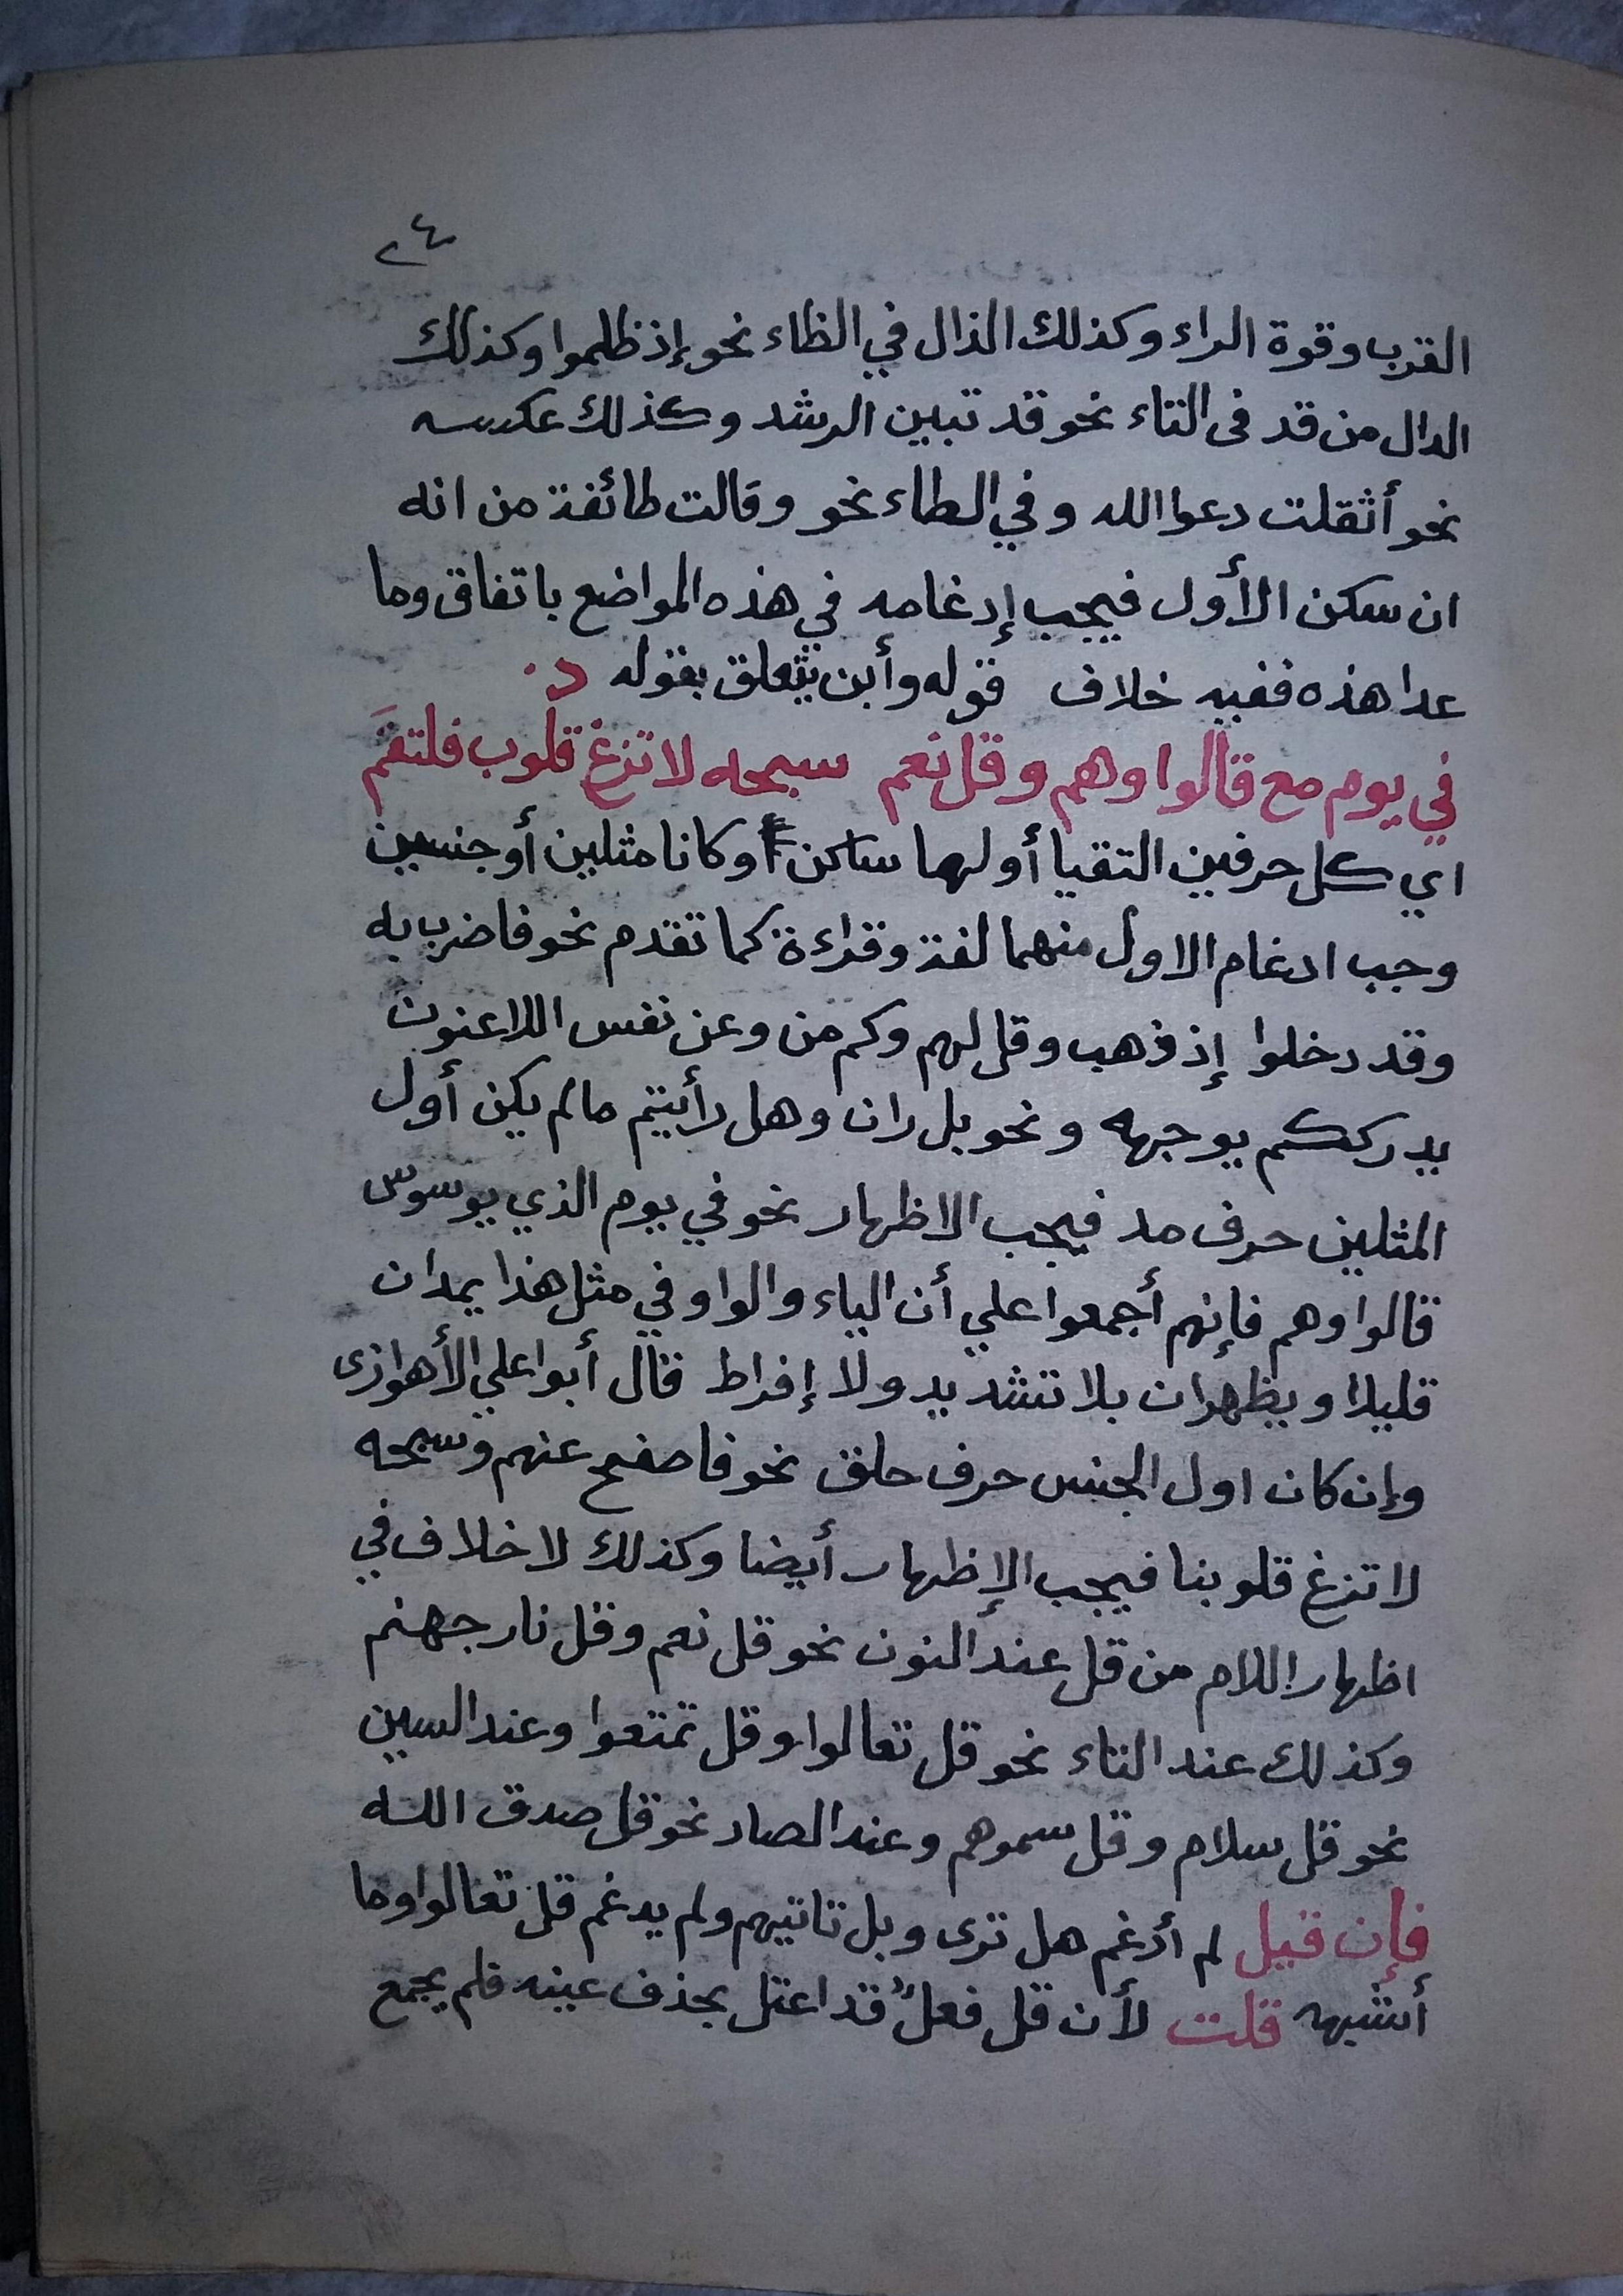 ٢٤
القرب وقوة الراء وكذلك الذال في الظاء نحو إذ ظلموا وكذلك
الدال من قد فى التاء نحو قد تبين الرشد وكذلك عكسه
نحو أثقلت دعوا الله وفي الطاء نحو وقالت طائفة من انه
ان سكن الأول فيجب إدغامه في هذه المواضع باتفاق وما
عدا هذه ففيه خلاف قوله وأبن يتعلق بقوله
في يوم مع قالوا وهم وقل نعم سبحه لا تزغ قلوب فلتقم
اي كل حرفين التقيا أولهما ساكن أو كانا مثلين أو جنسين
وجب ادغام الاول منهما لغة وقراءة كما تقدم نحو فاضرب به
وقد دخلوا إذ ذهب وقل لهم وكم من وعن نفس اللاعنون
يدرككم يوجهه ونحو بل ران وهل رأيتم مالم يكن أول
المثلين حرف مد فيجب الاظهار نحو في يوم الذي يوسوس
قالوا وهم فإنهم أجمعوا علي أن الياء والواو في مثل هذا يمدان
قليلا ويظهران بلا تشديد ولا إفراط قال أبوا علي الأهوازى
وإن كان اول الجنس حرف حلق نحو فاصفح عنهم وسبحه
لا تزغ قلوبنا فيجب الإظهار أيضا وكذلك لا خلاف في
اظهار اللام من قل عند النون نحو قل نعم وقل نار جهنم
وكذلك عند التاء نحو قل تعالوا وقل تمتعوا وعند السين
نحو قل سلام وقل سموهم وعند الصاد نحو قل صدق الله
فإن قيل لم أدغم هل ترى وبل تاتيهم ولم يدغم قل تعالوا وما
أشبهه قلت لأن قل فعلٌ قد اعتل بحذف عينه فلم يجمع